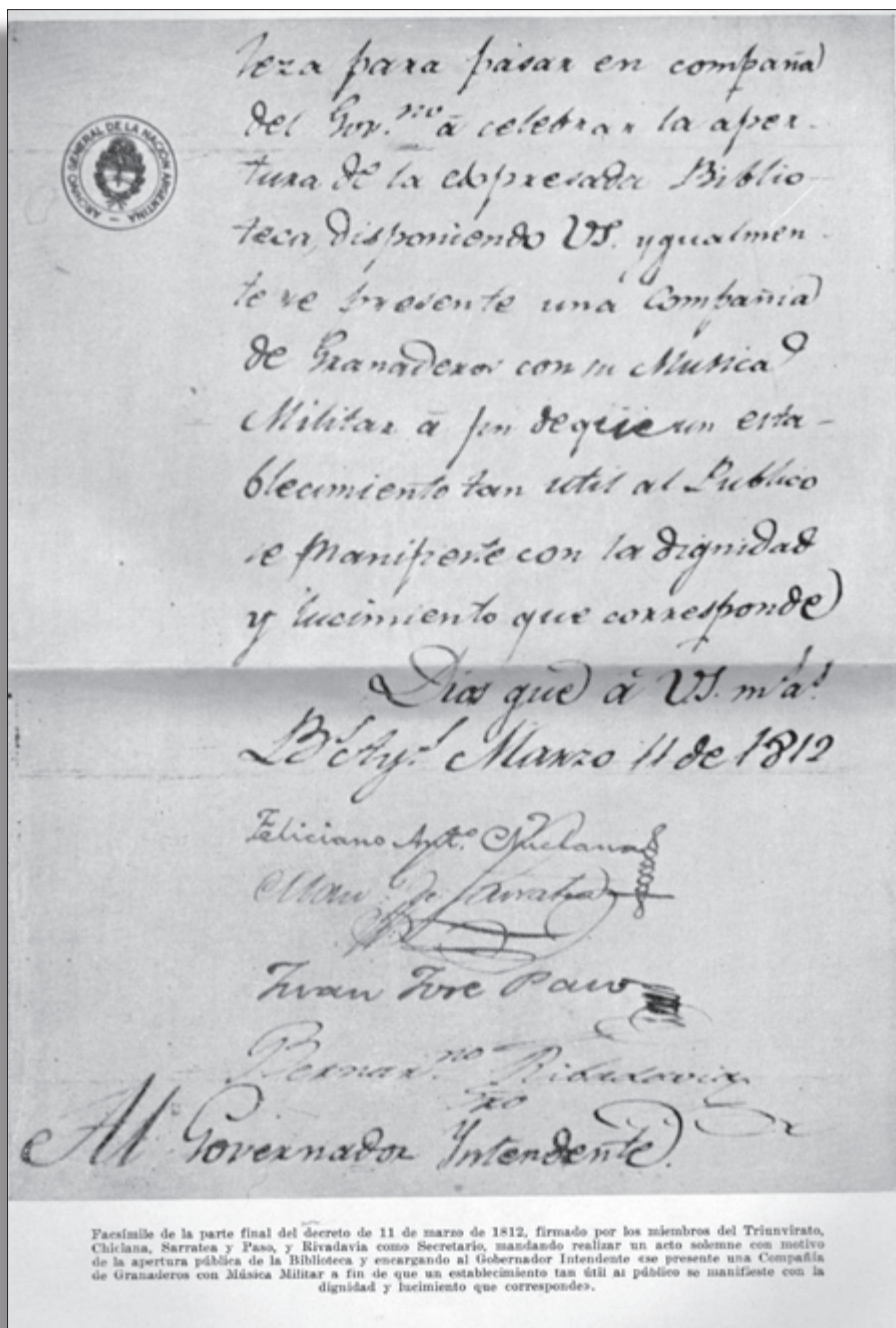 ARCHIVO GENERAL DE LA NACION ARGENTINA
leza para pasar en compañia
del Gov.no â celebrar la aper-
tura de la expresada Biblio-
teca, disponiendo VS. ygualmen-
te se presente una Compañia
de Granaderos con su Musica
Militar â fin de que un esta-
blecimiento tan util al Publico
se manifieste con la dignidad
y lucimiento que corresponde
Dios gue â VS. m.s a.s
B.s Ay.s Marzo 11 de 1812
Feliciano Ant.o Chiclana
Man. de Sarratea
Juan Jose Paso
Bernar.no Ribadavia
Sro
Al Governador Yntendente.
Facsímile de la parte final del decreto de 11 de marzo de 1812, firmado por los miembros del Triunvirato,
Chiclana, Sarratea y Paso, y Rivadavia como Secretario, mandando realizar un acto solemne con motivo
de la apertura pública de la Biblioteca y encargando al Gobernador Intendente «se presente una Compañía
de Granaderos con Música Militar a fin de que un establecimiento tan útil al público se manifieste con la
dignidad y lucimiento que corresponde».